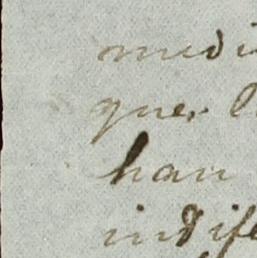 medi
que, l
han
indife